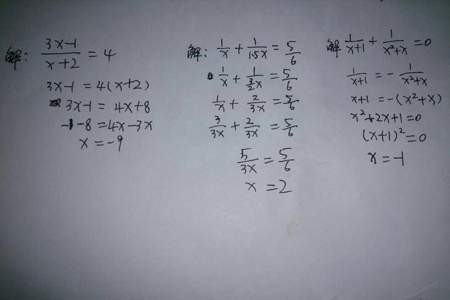 解: (3x-1)/(x+2) = 4
3x-1 = 4(x+2)
3x-1 = 4x+8
-1-8 = 4x-3x
x = -9
解: 1/x + 1/1.5x = 5/6
1/x + 1/(3/2 x) = 5/6
1/x + 2/3x = 5/6
3/3x + 2/3x = 5/6
5/3x = 5/6
x = 2
解 1/(x+1) + 1/(x²+x) = 0
1/(x+1) = - 1/(x²+x)
x+1 = -(x²+x)
x²+2x+1 = 0
(x+1)² = 0
x = -1